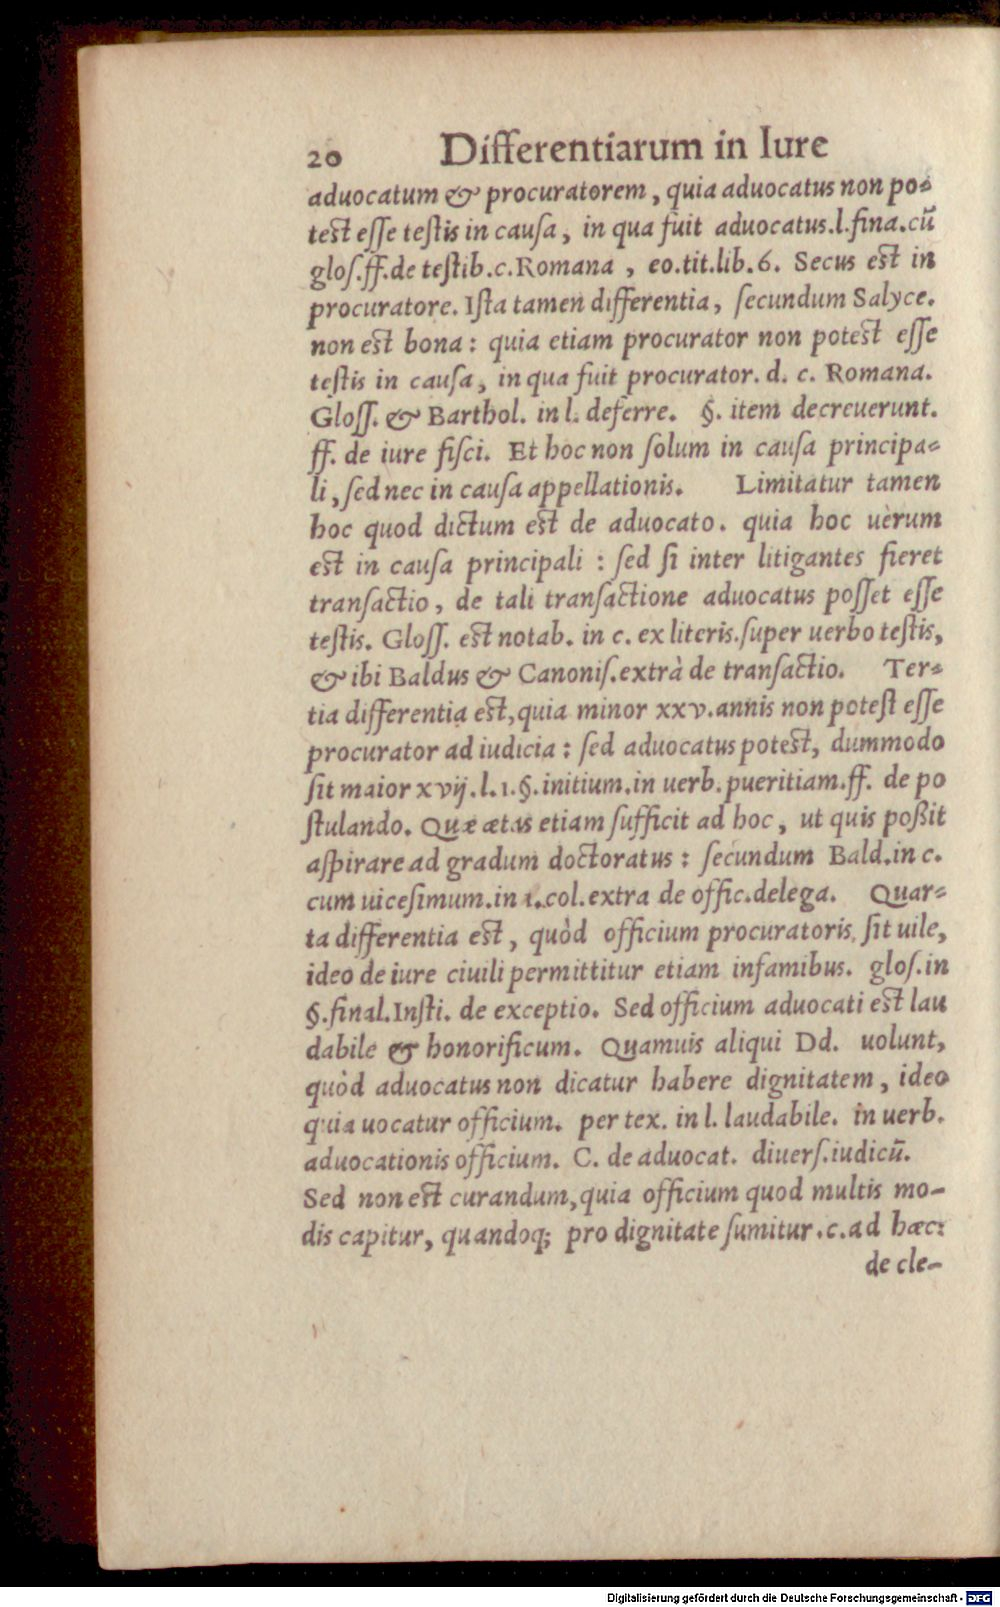 20 Differentiarum in Iure
aduocatum & procuratorem, quia aduocatus non po-
test esse testis in causa, in qua fuit aduocatus.l.fina.cū
glos.ff.de testib.c.Romana , eo.tit.lib.6. Secus est in
procuratore. Ista tamen differentia, secundum Salyce.
non est bona: quia etiam procurator non potest esse
testis in causa, in qua fuit procurator. d. c. Romana.
Gloss. & Barthol. in l. deferre. §. item decreuerunt.
ff. de iure fisci. Et hoc non solum in causa principa-
li, sed nec in causa appellationis. Limitatur tamen
hoc quod dictum est de aduocato. quia hoc uerum
est in causa principali : sed si inter litigantes fieret
transactio, de tali transactione aduocatus posset esse
testis. Gloss. est notab. in c. ex literis.super uerbo testis,
& ibi Baldus & Canonis.extrà de transactio. Ter-
tia differentia est, quia minor xxv.annis non potest esse
procurator ad iudicia : sed aduocatus potest, dummodo
sit maior xvij.l.1.§.initium.in uerb.pueritiam.ff. de po
stulando. Quæ ætas etiam sufficit ad hoc, ut quis poßit
aspirare ad gradum doctoratus : secundum Bald.in c.
cum uicesimum.in 1.col.extra de offic.delega. Quar-
ta differentia est, quòd officium procuratoris sit uile,
ideo de iure ciuili permittitur etiam infamibus. glos.in
§.final.Insti. de exceptio. Sed officium aduocati est lau
dabile & honorificum. Quamuis aliqui Dd. uolunt,
quòd aduocatus non dicatur habere dignitatem, ideo
quia uocatur officium. per tex. in l. laudabile. in uerb.
aduocationis officium. C. de aduocat. diuers.iudicū.
Sed non est curandum, quia officium quod multis mo-
dis capitur, quandoq; pro dignitate sumitur.c.ad hæc:
de cle-
Digitalisierung gefördert durch die Deutsche Forschungsgemeinschaft - DFG